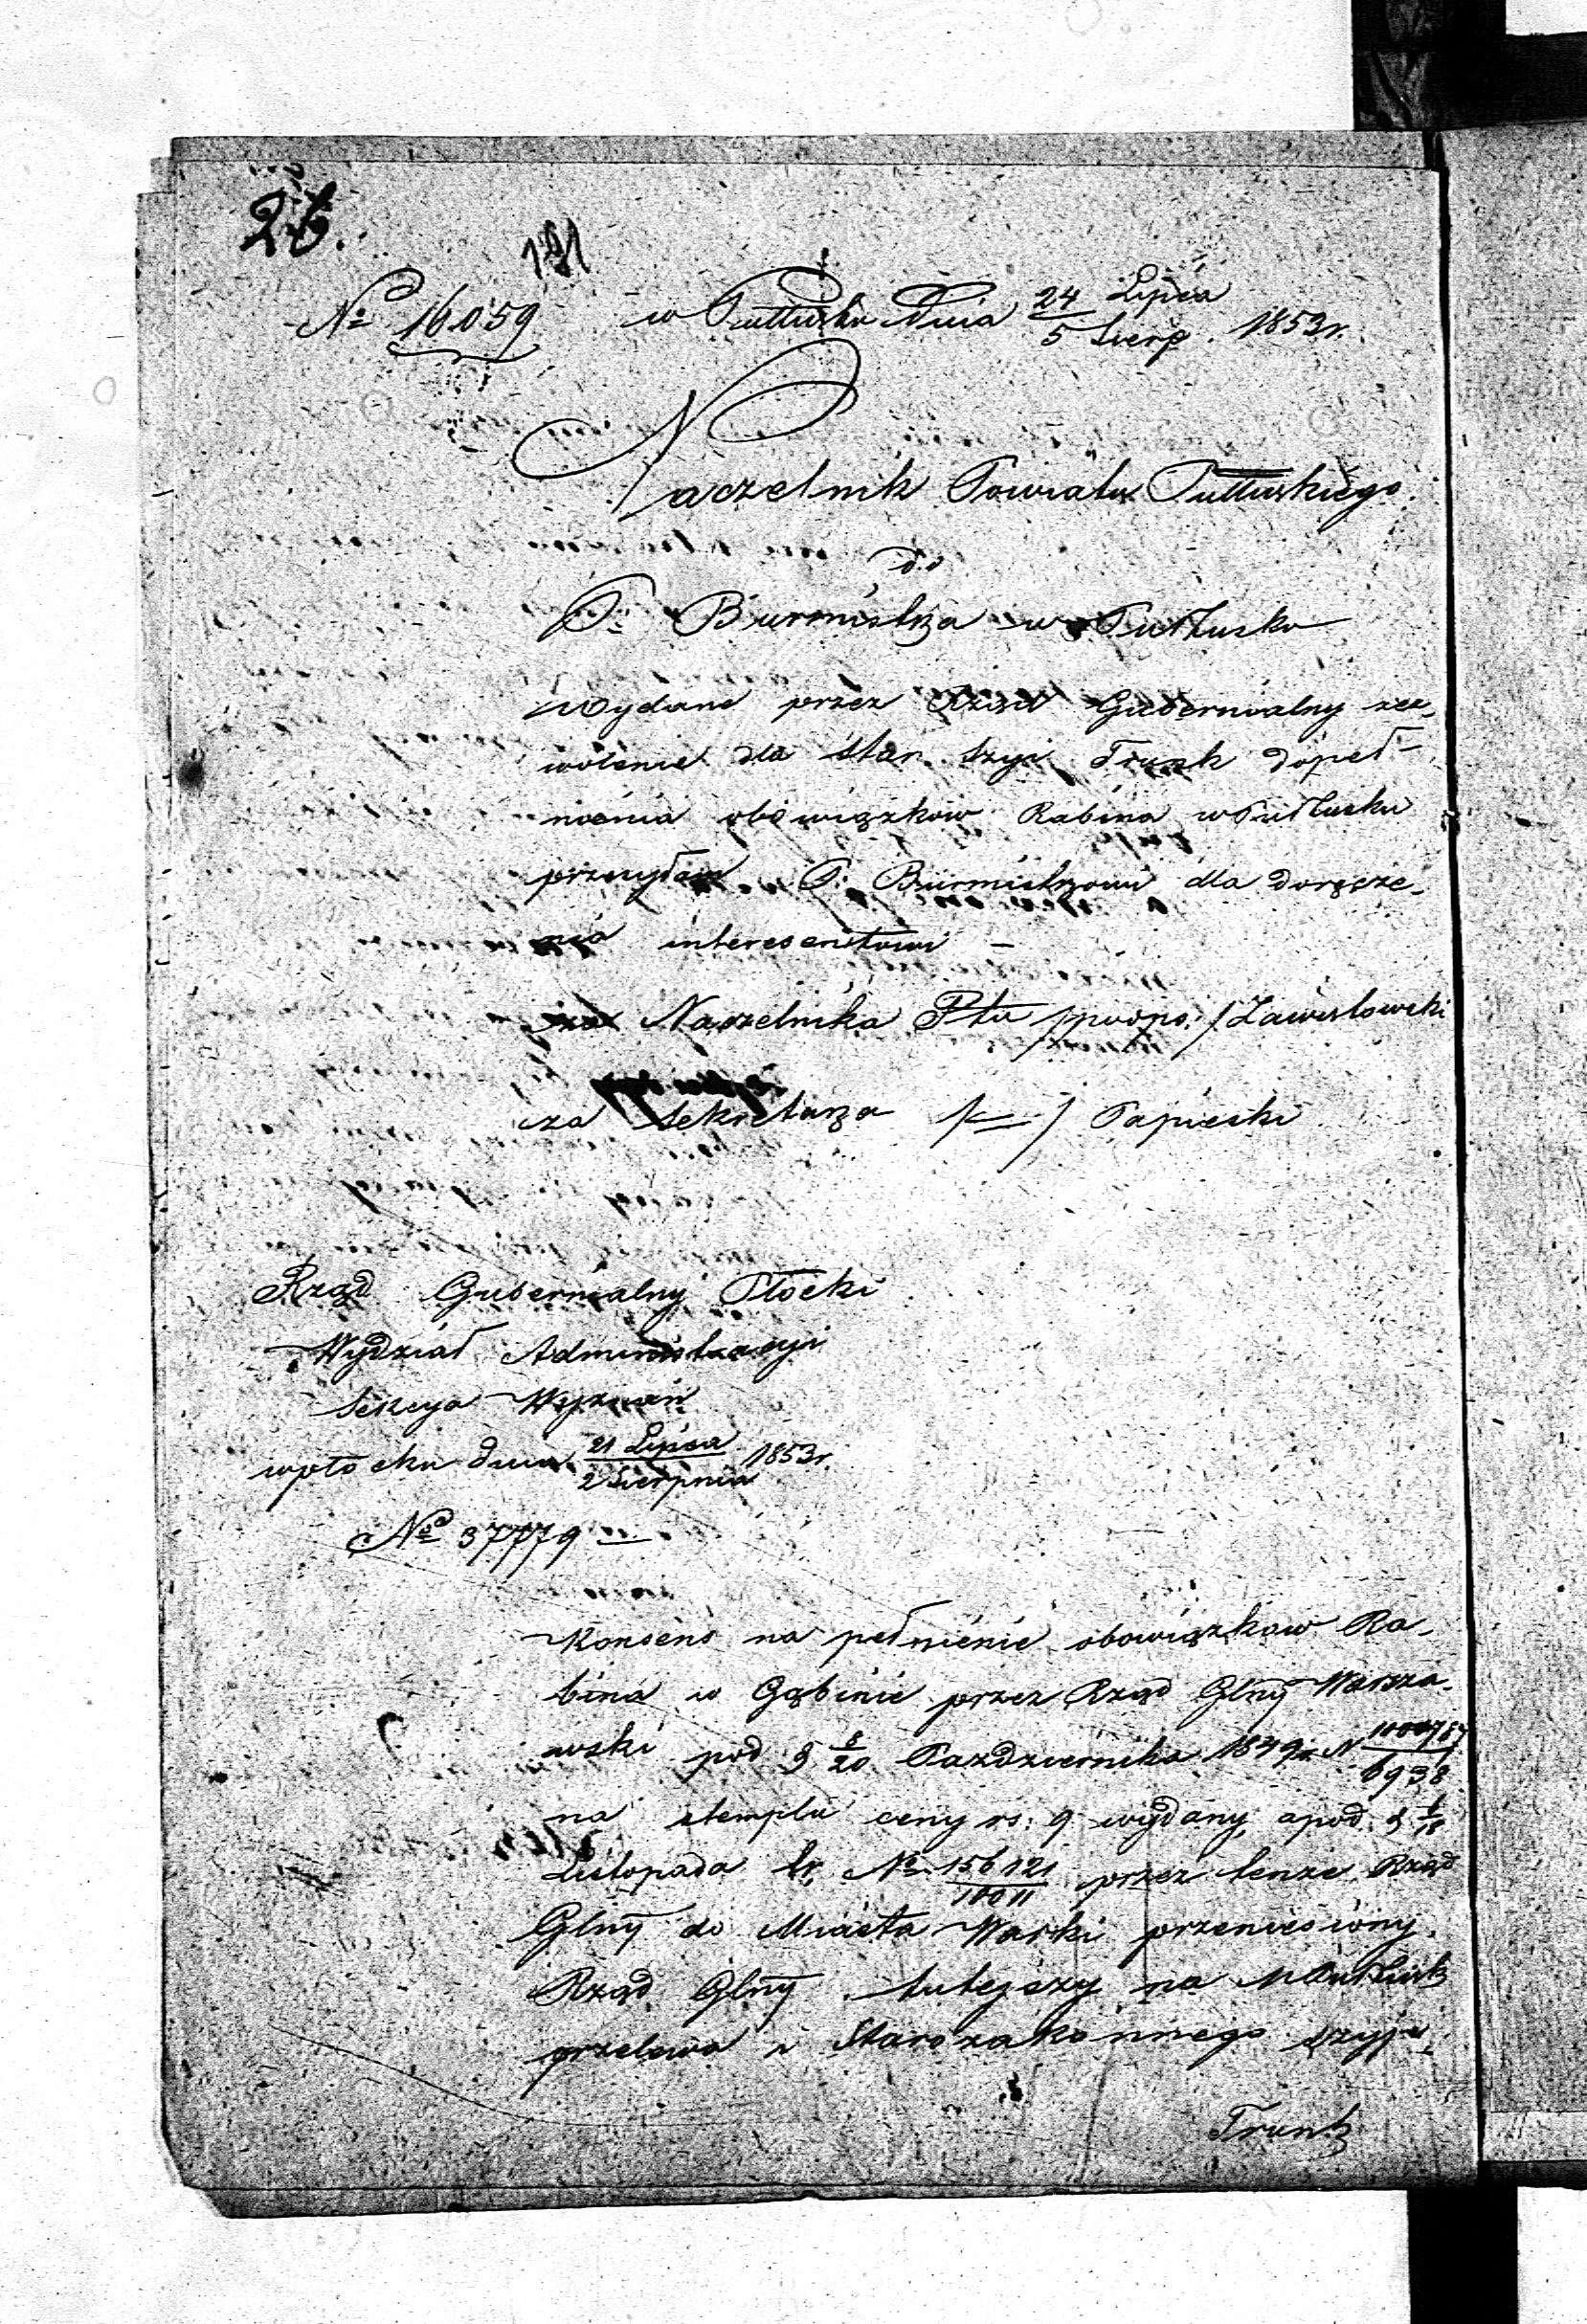 26.
191
№ 16059 w Pułtusku Dnia 24 Lipca / 5 Sierp. 1853 r.
Naczelnik Powiatu Pułtuskiego.
do
P. Burmistrza w Pułtusku
Wydane przez Rząd Gubernialny ze-
wolenie dla Star. Szyi Trunk dopeł-
nienia obowiązkow Rabina w Pułtusku
przesyłam P. Burmistrzowi dla doręcze-
nia interesentowi –
za Naczelnika Ptu /podpis./ Zawistowski
za Sekretarza /–/ Papieski
Rząd Gubernialny Płocki
Wydział Administracyi
Sekcya Wyznań
w Płocku dnia 21 Lipca / 2 Sierpnia 1853 r.
№ 37779 –
Konsens na pełnienie obowiązkow Ra-
bina w Gąbinie przez Rząd Glny Warsza-
wski pod d 8/20 Pazdziernika 1849 r. N
6938
na stemplu ceny rs: 9 wydany, a pod d 6/18
Listopada tr. № 156121 / 10011 przez tenze Rząd
Glny do Miasta Warki przeniesiony.
Rząd Glny tutejszy na M Pułtusk
przelewa i Starozakonnego Szyję
Trunk